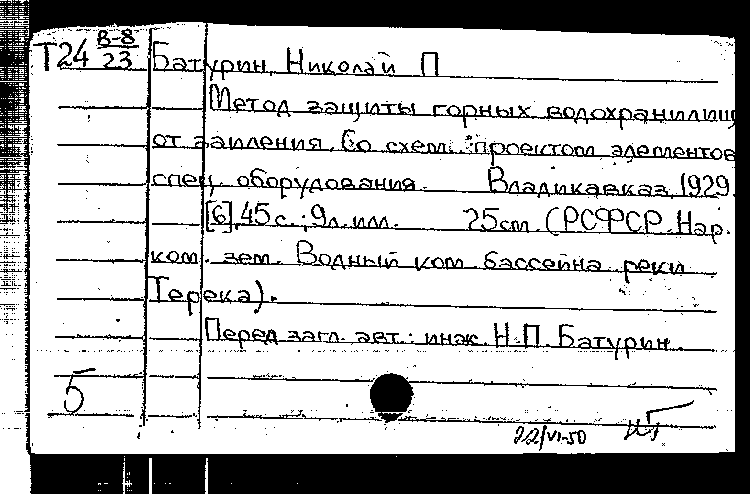 Т24 В-8/23 Батурин, Николай П
Метод защиты горных водохранилищ
от заиления. Со схем. проектом элементов
спец. оборудования. Владикавказ, 1929.
[6], 45 с.; 9 л. илл. 25 см. (РСФСР. Нар.
ком. зем. Водный ком. бассейна реки
Терека).
Перед загл. авт.: инж. Н.П. Батурин.
5
22/VI-50